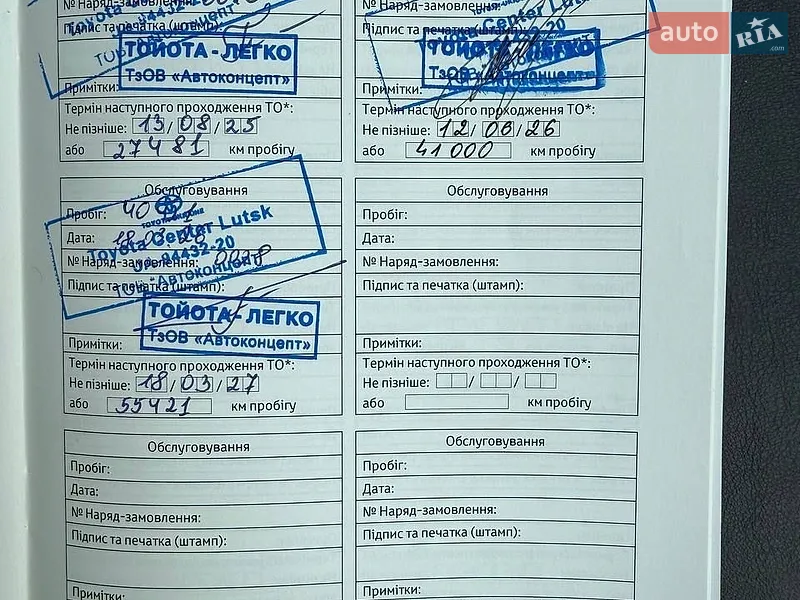 № Наряд-замовлення:
Toyota
94432-20
"Автоконцепт"
Підпис та печатка
ТОЙОТА - ЛЕГКО
ТзОВ «Автоконцепт»
Примітки:
Термін наступного проходження ТО*:
Не пізніше: 13/08/25
або 27481 км пробігу
№ Наряд-замовлення:
Toyota Center Lutsk
Підпис та печатка (штамп):
ТОЙОТА - ЛЕГКО
ТзОВ «Автоконцепт»
Примітки:
Термін наступного проходження ТО*:
Не пізніше: 12/06/26
або 41000 км пробігу
auto RIA .com
Обслуговування
Пробіг:
TOYOTA UKRAINE
Дата: 18 03
Toyota Center Lutsk
94432-20
№ Наряд-замовлення:
"Автоконцепт"
Підпис та печатка (штамп):
ТОЙОТА - ЛЕГКО
ТзОВ «Автоконцепт»
Примітки:
Термін наступного проходження ТО*:
Не пізніше: 18/03/27
або 55421 км пробігу
Обслуговування
Пробіг:
Дата:
№ Наряд-замовлення:
Підпис та печатка (штамп):
Примітки:
Термін наступного проходження ТО*:
Не пізніше: / /
або км пробігу
Обслуговування
Пробіг:
Дата:
№ Наряд-замовлення:
Підпис та печатка (штамп):
Примітки:
Обслуговування
Пробіг:
Дата:
№ Наряд-замовлення:
Підпис та печатка (штамп):
Примітки: